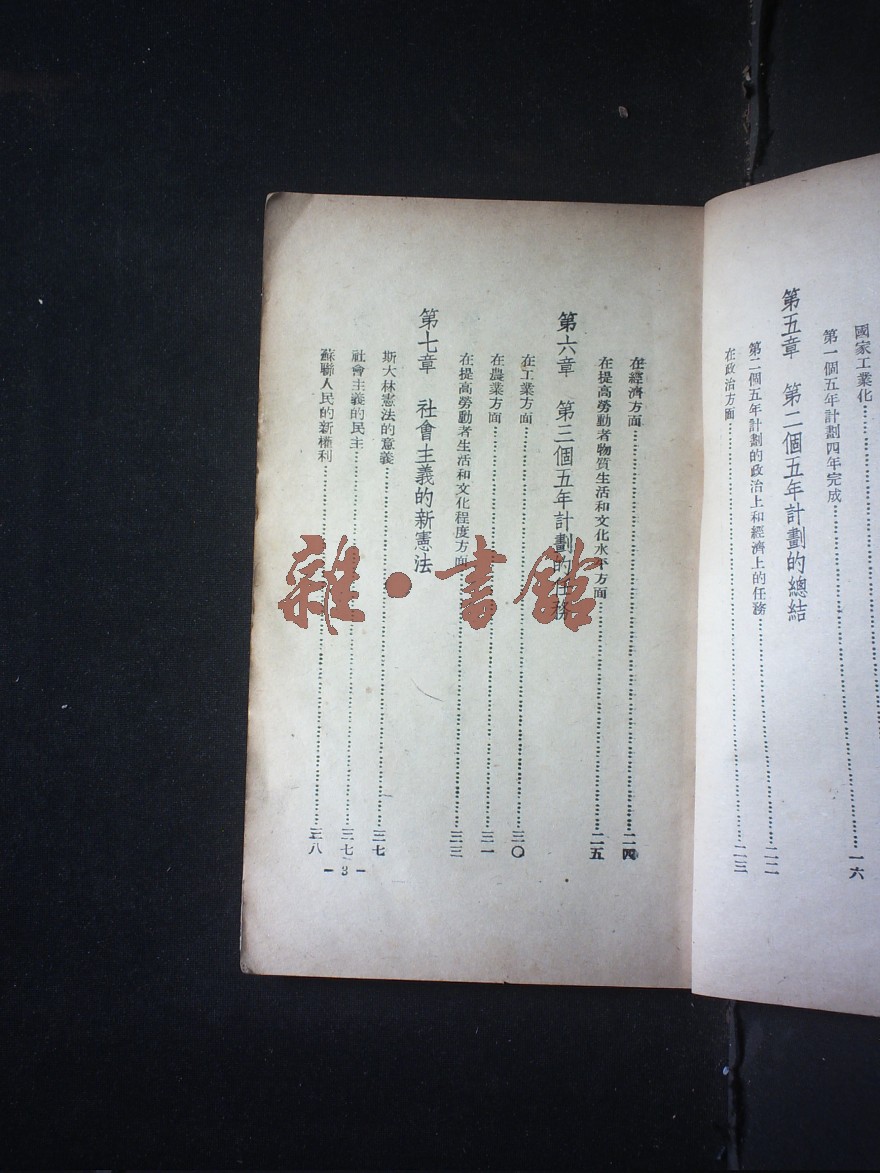 國家工業化……
第一個五年計劃四年完成……一六
第五章 第二個五年計劃的總結
第二個五年計劃的政治上和經濟上的任務……二二
在政治方面……二三
在經濟方面……二四
在提高勞動者物質生活和文化水平方面……二五
第六章 第三個五年計劃的任務
在工業方面……三〇
在農業方面……三一
在提高勞動者生活和文化程度方面……三三
第七章 社會主義的新憲法
斯大林憲法的意義……三七
社會主義的民主……三七
蘇聯人民的新權利……三八
- 3 -
雜·書館